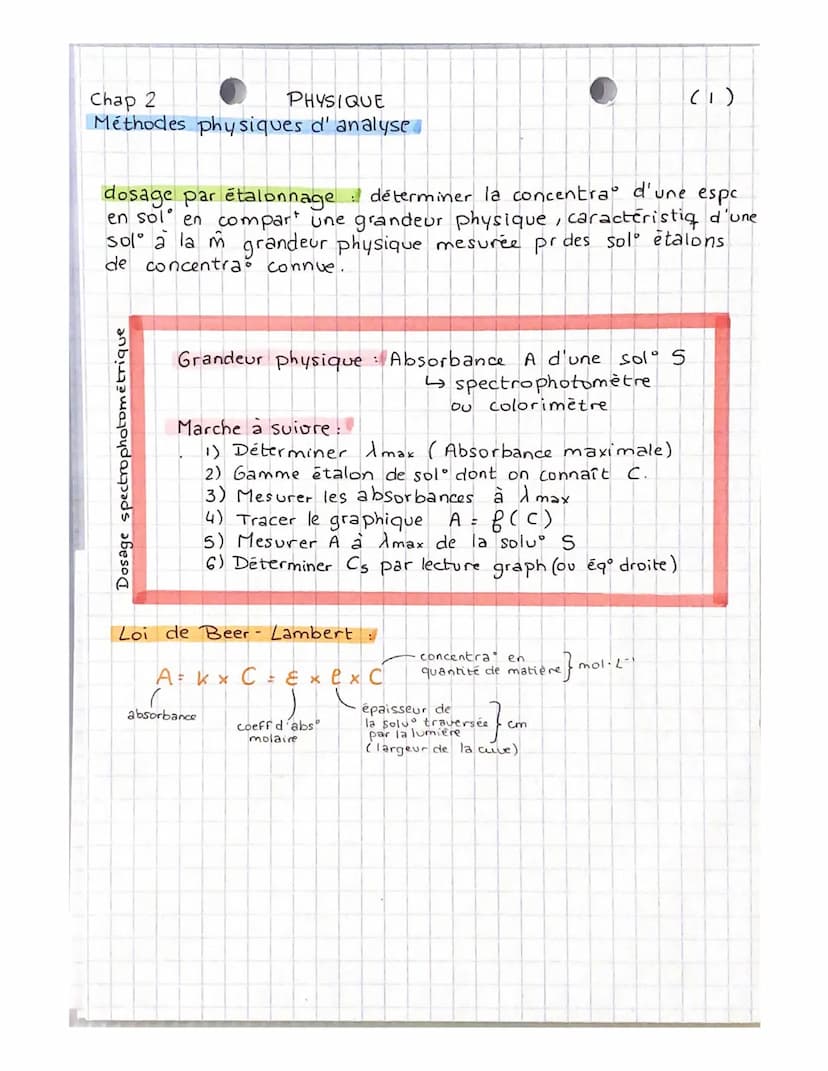 Chap 2 PHYSIQUE (1)
Méthodes physiques d'analyse
dosage par étalonnage : déterminer la concentra° d'une espc
en sol° en compart une grandeur physique, caractéristiq d'une
sol° à la m̂ grandeur physique mesurée pr des sol° étalons
de concentra° connue.
Dosage spectrophotométrique
Grandeur physique : Absorbance A d'une sol° S
↳ spectrophotomètre
ou colorimètre
Marche à suivre :
1) Déterminer λmax (Absorbance maximale)
2) Gamme étalon de sol° dont on connaît C.
3) Mesurer les absorbances à λmax
4) Tracer le graphique A = f(C)
5) Mesurer A à λmax de la solu° S
6) Déterminer Cs par lecture graph (ou éq° droite)
Loi de Beer-Lambert :
A = k x C = ε x l x C
concentra° en
quantité de matière } mol·L⁻¹
absorbance
coeff d'abs°
molaire
épaisseur de
la solu° traversée } cm
par la lumière
(largeur de la cuve)